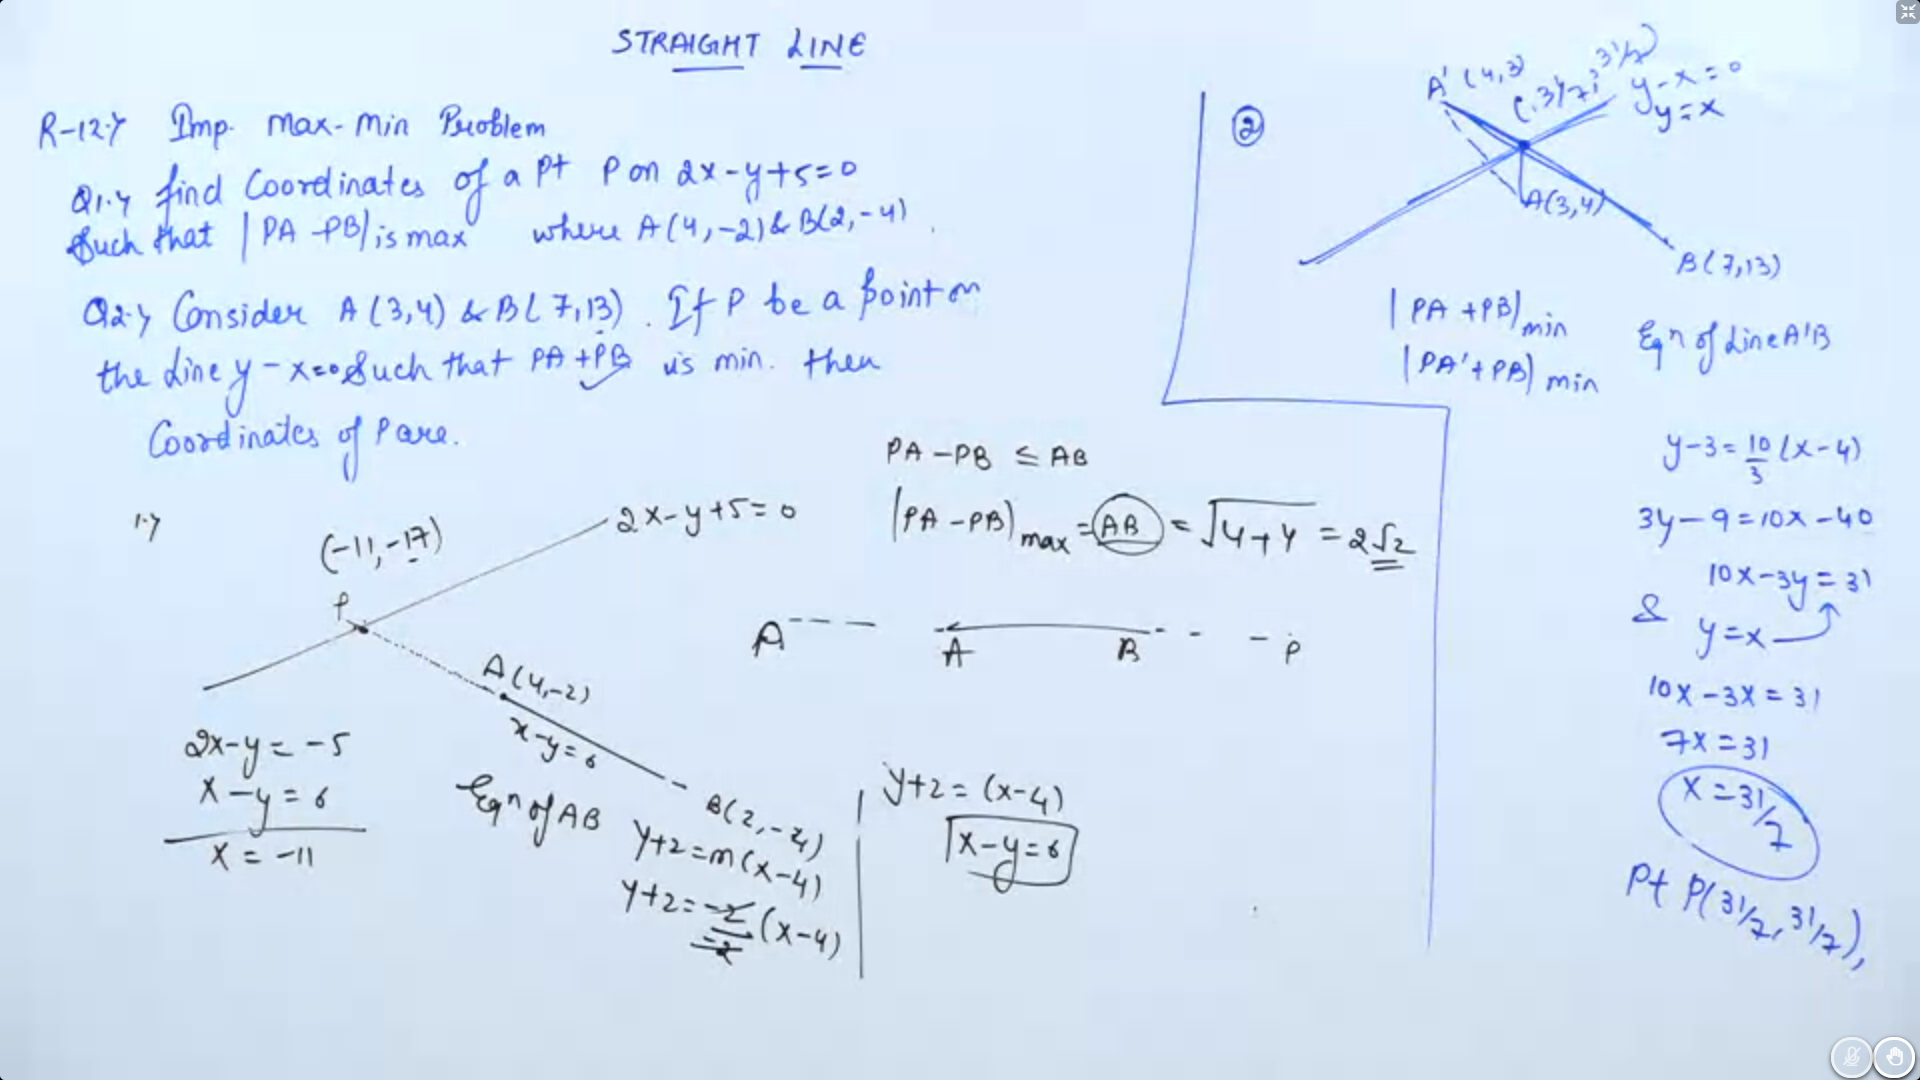 STRAIGHT LINE
R-12.→ Imp. Max-Min Problem
Q1.→ find Coordinates of a pt P on 2x-y+5=0
Such that |PA-PB| is max where A(4,-2) & B(2,-4).
Q2.→ Consider A(3,4) & B(7,13). If P be a point on
the Line y-x=0 Such that PA+PB is min. then
Coordinates of P are.
1.→
(-11,-17)
P
2x-y+5=0
A(4,-2)
x-y=6
B(2,-4)
2x-y=-5
x-y=6
x=-11
Eqn of AB
y+2=m(x-4)
y+2=-2/-2(x-4)
y+2=(x-4)
x-y=6
PA-PB ≤ AB
|PA-PB|max = AB = √4+4 = 2√2
A
A B P
②
A'(4,3)
(31/7, 31/7)
y-x=0
y=x
A(3,4)
B(7,13)
|PA+PB|min
|PA'+PB|min
Eqn of Line A'B
y-3=10/3(x-4)
3y-9=10x-40
10x-3y=31
&
y=x
10x-3x=31
7x=31
x=31/7
Pt P(31/7, 31/7),